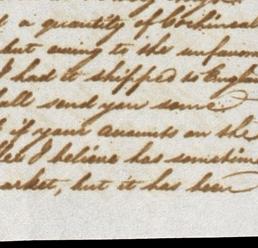 a quantity of Cochineal
but owing to the unfavor
I had it shipped to Engla
all send you some
if your accounts on the
I believe has sometim
arket, but it has been